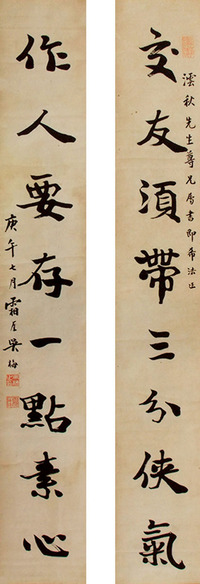 交友須帶三分俠氣
秋先生尊兄屬書即希法正
作人要存一點素心
庚午七月霜厓吳梅